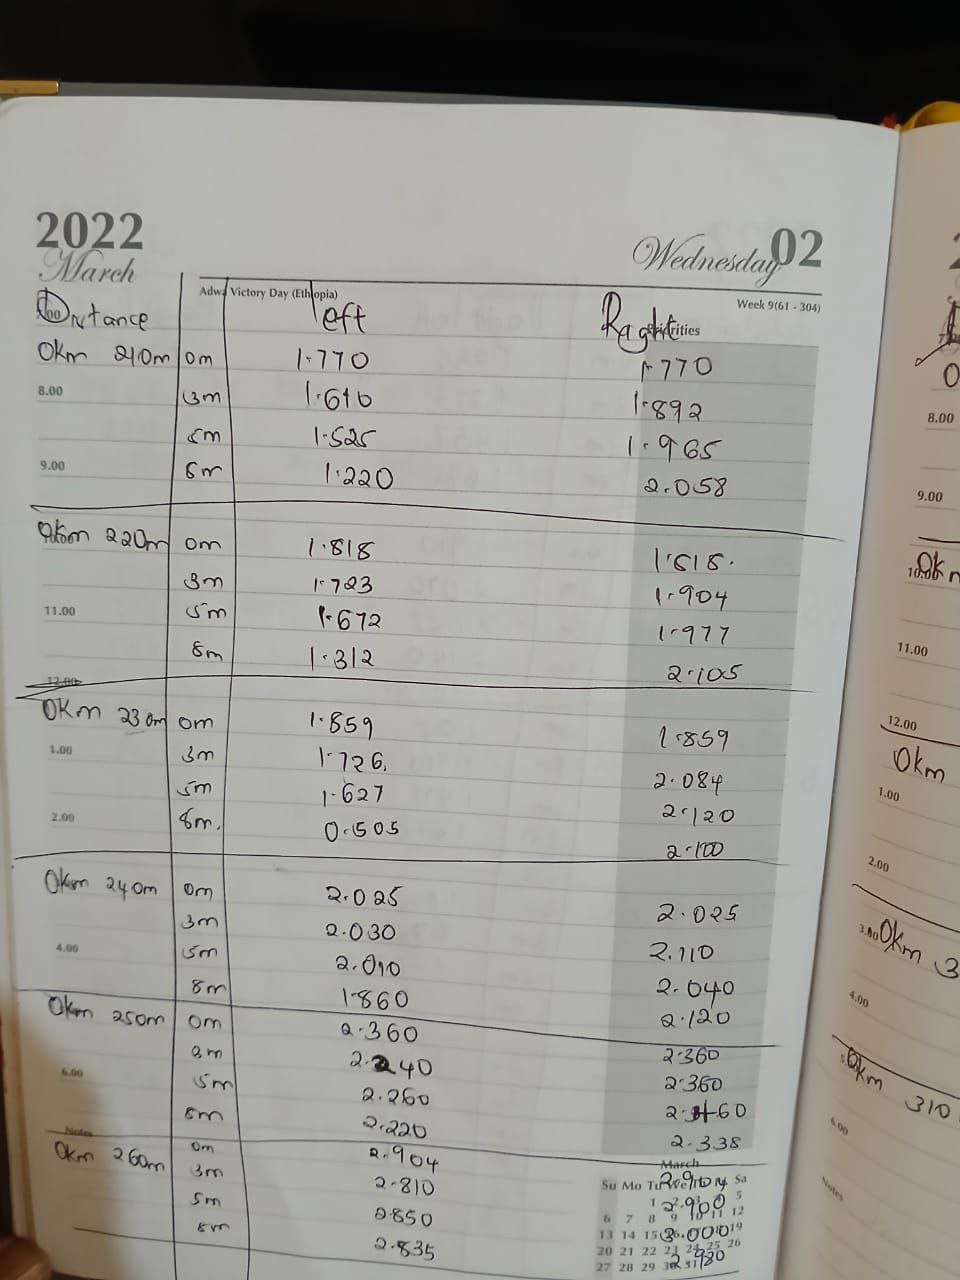 2022
March
Wednesday 02
Adwa Victory Day (Ethiopia)
Week 9(61 - 304)
Distance left Raght
0km 210m 0m 1.770 1.770
8.00 3m 1.610 1.892
5m 1.525 1.965
9.00 8m 1.220 2.058
0km 220m 0m 1.818 1.818.
3m 1.723 1.904
11.00 5m 1.672 1.977
8m 1.312 2.105
12.00
0km 230m 0m 1.859 1.859
1.00 3m 1.726. 2.084
5m 1.627 2.120
2.00 8m. 0.505 2.100
0km 240m 0m 2.025 2.025
3m 2.030 2.110
4.00 5m 2.010 2.040
8m 1.860 2.120
0km 250m 0m 2.360 2.360
3m 2.240 2.360
6.00 5m 2.260
8m 2.220 2.338
Notes
0km 260m 0m 2.904
3m 2.810 2.900
5m 2.850 3.000
8m 2.835 2.980
March
Su Mo Tu We Sa
1 5
6 7 8 9 10 11 12
13 14 15 19
20 21 22 23 24 25 26
27 28 29 30 31
8.00
9.00
11.00
12.00
0km
1.00
2.00
3.00 0km 3
4.00
0km 310
6.00
Notes